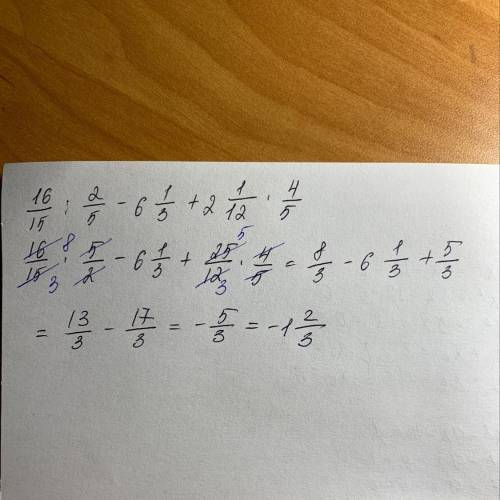 16/15 : 2/5 - 6 1/3 + 2 1/12 · 4/5
16/15 8 3 · 5/2 - 6 1/3 + 25/12 5 3 · 4/5 = 8/3 - 6 1/3 + 5/3
= 13/3 - 17/3 = - 5/3 = -1 2/3